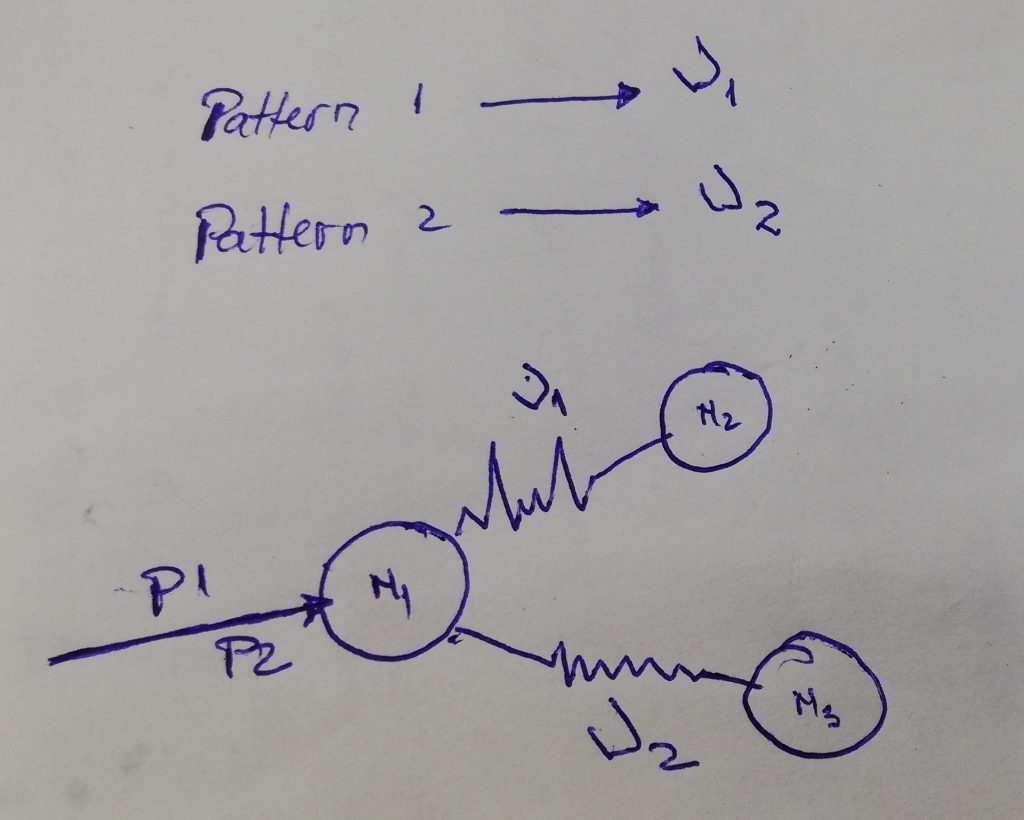 Pattern 1 → ν₁
Pattern 2 → ν₂
ν₁
N₂
P1
N₁
P2
N₃
ν₂